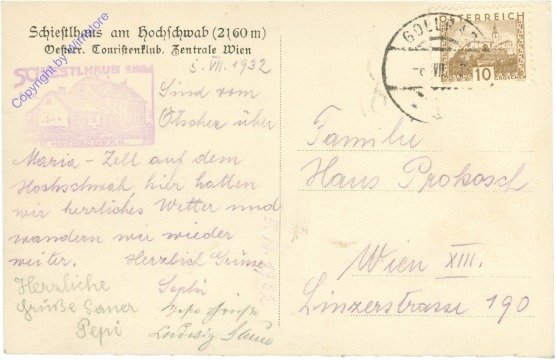 Schiestlhaus am Hochschwab (2160 m)
Oesterr. Touristenklub. Zentrale Wien
Copyright by Wimstore
SCHIESTLHAUS
HOCHSCHWAB
5. VII. 1932
Sind vom
Ötscher über
Maria-Zell auf dem
Hochschwab hier hatten
wir herrliches Wetter und
wandern wie wieder
weiter. Herzlich Grüsse
Herzliche
Grüße
Pepi
Ludwig
GOLLRAD
ÖSTERREICH
10 GROSCHEN
Familie
Hans Prokosch
Wien XIII.
Linzerstrasse 190